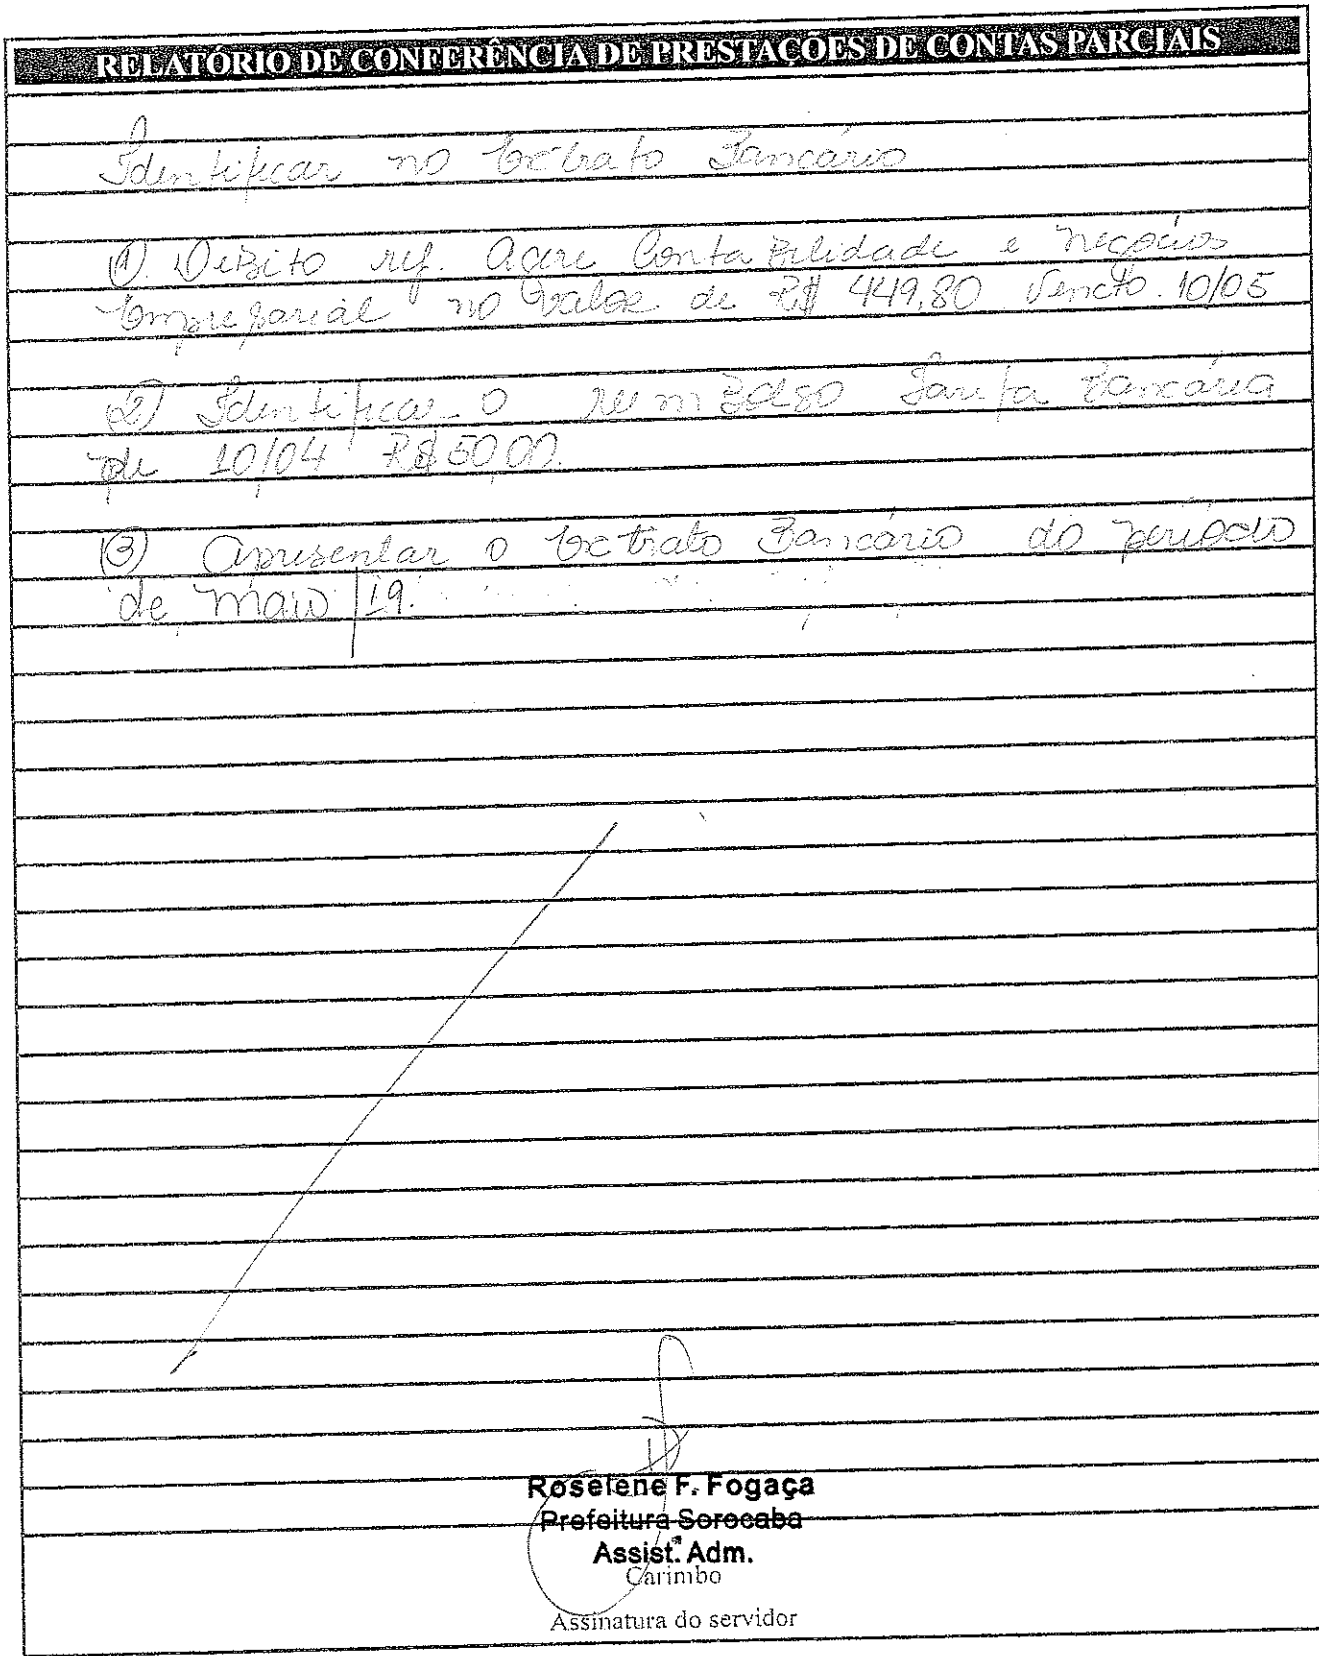 RELATÓRIO DE CONFERÊNCIA DE PRESTAÇÕES DE CONTAS PARCIAIS
Identificar no Extrato Bancário
1. Debito ref. Contabilidade e Negócios
Empresarial no valor de R$ 449,80 Vencto. 10/05
2) Identificar o reembolso Tarifa Bancária
de 10/04 R$ 50,00.
3) Apresentar o Extrato Bancário do período
de maio/19.
Roselene F. Fogaça
Prefeitura Sorocaba
Assist. Adm.
Carimbo
Assinatura do servidor